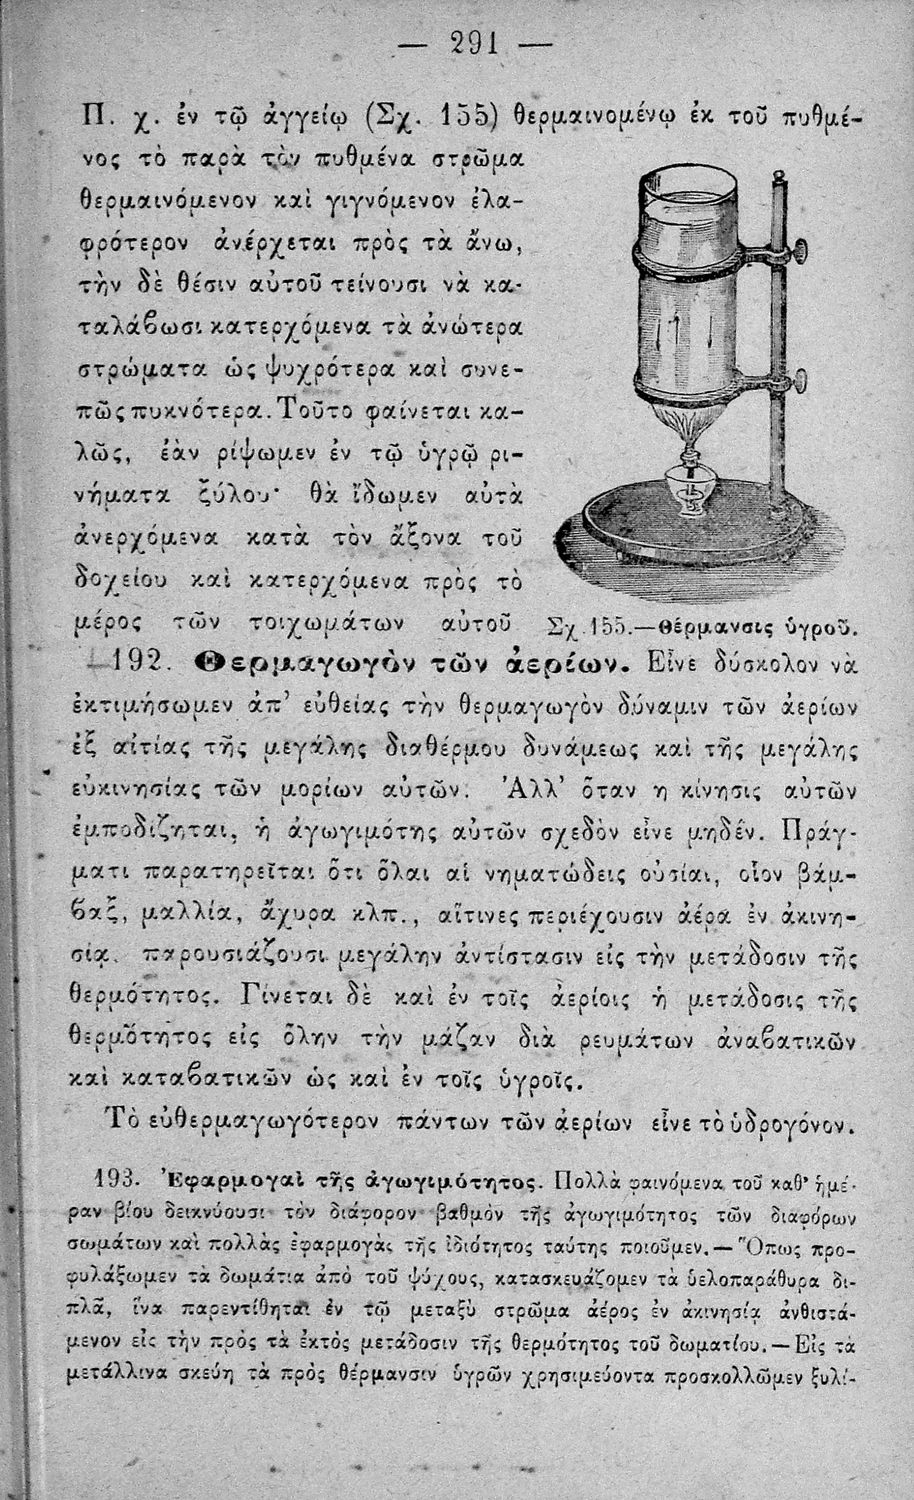 — 291 —
Π. χ. ἐν τῷ ἀγγείῳ (Σχ. 155) θερμαινομένῳ ἐκ τοῦ πυθμέ-
νος τὸ παρὰ τὸν πυθμένα στρῶμα
θερμαινόμενον καὶ γιγνόμενον ἐλα-
φρότερον ἀνέρχεται πρὸς τὰ ἄνω,
τὴν δὲ θέσιν αὐτοῦ τείνουσι νὰ κα-
ταλάβωσι κατερχόμενα τὰ ἀνώτερα
στρώματα ὡς ψυχρότερα καὶ συνε-
πῶς πυκνότερα. Τοῦτο φαίνεται κα-
λῶς, ἐὰν ρίψωμεν ἐν τῷ ὑγρῷ ρι-
νήματα ξύλου· θὰ ἴδωμεν αὐτὰ
ἀνερχόμενα κατὰ τὸν ἄξονα τοῦ
δοχείου καὶ κατερχόμενα πρὸς τὸ
μέρος τῶν τοιχωμάτων αὐτοῦ
Σχ. 155.—Θέρμανσις ὑγροῦ.
192. Θερμαγωγὸν τῶν ἀερίων. Εἶνε δύσκολον νὰ
ἐκτιμήσωμεν ἀπ' εὐθείας τὴν θερμαγωγὸν δύναμιν τῶν ἀερίων
ἐξ αἰτίας τῆς μεγάλης διαθέρμου δυνάμεως καὶ τῆς μεγάλης
εὐκινησίας τῶν μορίων αὐτῶν. Ἀλλ' ὅταν η κίνησις αὐτῶν
ἐμποδίζηται, ἡ ἀγωγιμότης αὐτῶν σχεδὸν εἶνε μηδέν. Πράγ-
ματι παρατηρεῖται ὅτι ὅλαι αἱ νηματώδεις οὐσίαι, οἷον βάμ-
βαξ, μαλλία, ἄχυρα κλπ., αἵτινες περιέχουσιν ἀέρα ἐν ἀκινη-
σίᾳ, παρουσιάζουσι μεγάλην ἀντίστασιν εἰς τὴν μετάδοσιν τῆς
θερμότητος. Γίνεται δὲ καὶ ἐν τοῖς ἀερίοις ἡ μετάδοσις τῆς
θερμότητος εἰς ὅλην τὴν μάζαν διὰ ρευμάτων ἀναβατικῶν
καὶ καταβατικῶν ὡς καὶ ἐν τοῖς ὑγροῖς.
Τὸ εὐθερμαγωγότερον πάντων τῶν ἀερίων εἶνε τὸ ὑδρογόνον.
193. Ἐφαρμογαὶ τῆς ἀγωγιμότητος. Πολλὰ φαινόμενα τοῦ καθ' ἡμέ-
ραν βίου δεικνύουσι τὸν διάφορον βαθμὸν τῆς ἀγωγιμότητος τῶν διαφόρων
σωμάτων καὶ πολλὰς ἐφαρμογὰς τῆς ἰδιότητος ταύτης ποιοῦμεν.—Ὅπως προ-
φυλάξωμεν τὰ δωμάτια ἀπὸ τοῦ ψύχους, κατασκευάζομεν τὰ ὑελοπαράθυρα δι-
πλᾶ, ἵνα παρεντίθηται ἐν τῷ μεταξὺ στρῶμα ἀέρος ἐν ἀκινησίᾳ ἀνθιστά-
μενον εἰς τὴν πρὸς τὰ ἐκτὸς μετάδοσιν τῆς θερμότητος τοῦ δωματίου.—Εἰς τὰ
μετάλλινα σκεύη τὰ πρὸς θέρμανσιν ὑγρῶν χρησιμεύοντα προσκολλῶμεν ξυλί-